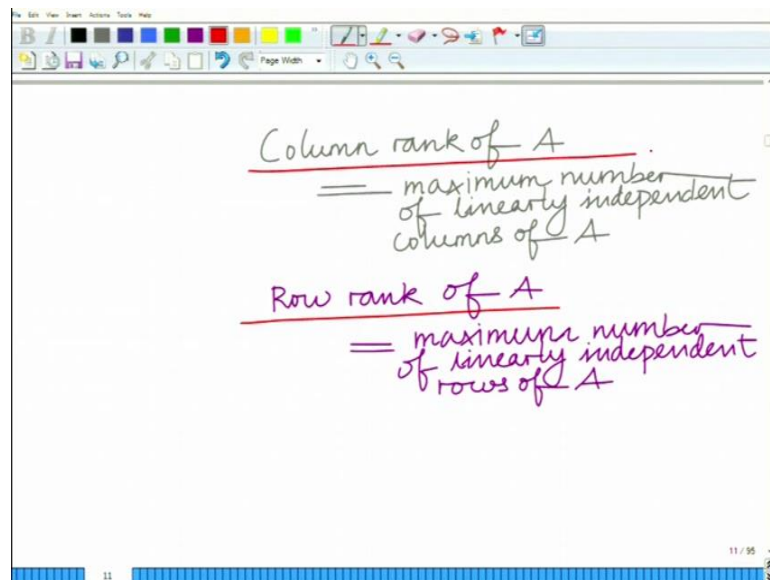 File Edit View Insert Actions Tools Help
B I
Page Width
Column rank of A
= maximum number
of linearly independent
columns of A
Row rank of A
= maximum number
of linearly independent
rows of A
11 / 95
11